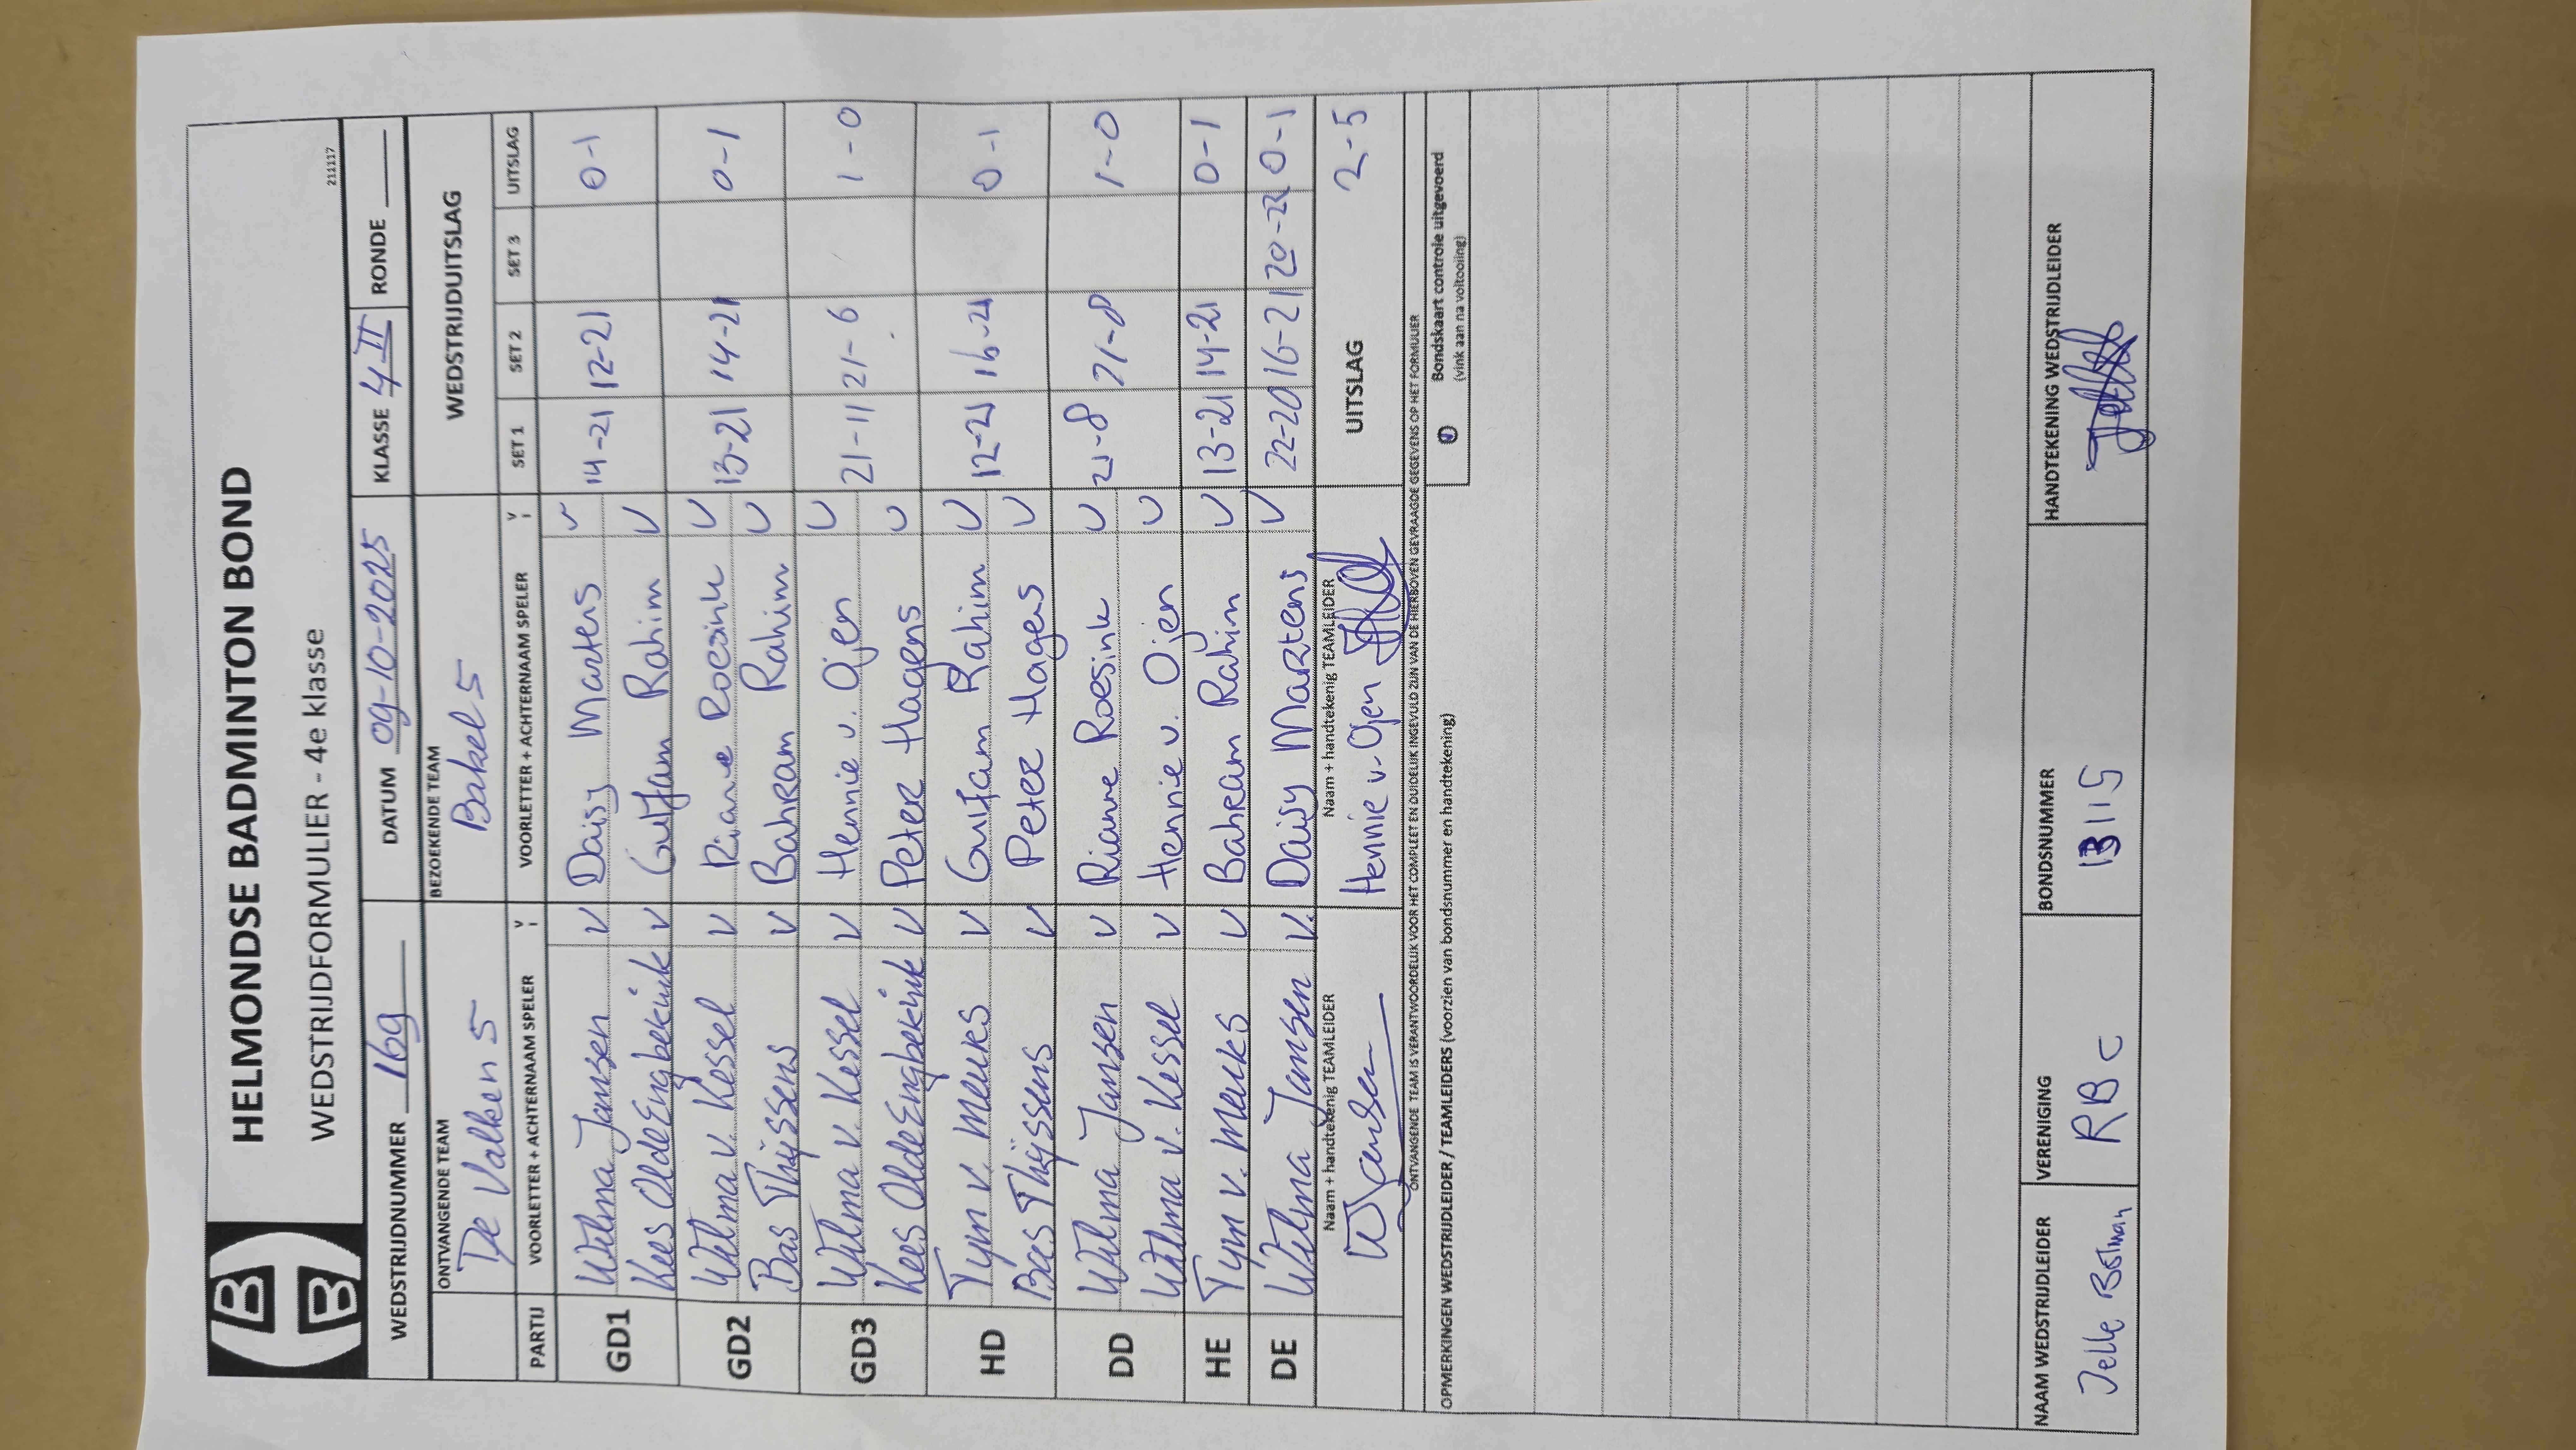 HELMONDSE BADMINTON BOND
WEDSTRIJDFORMULIER - 4e klasse
211117
WEDSTRIJDNUMMER 169 DATUM 09-10-2025 KLASSE 4 II RONDE
ONTVANGENDE TEAM BEZOEKENDE TEAM WEDSTRIJDUITSLAG
De Valken 5 Bakel 5
PARTIJ VOORLETTER + ACHTERNAAM SPELER V VOORLETTER + ACHTERNAAM SPELER V SET 1 SET 2 SET 3 UITSLAG
GD1 Wilma Jansen V Daisy Martens V 14-21 12-21 0-1
Kees Olde Engbekink V Gulfam Rahim V
GD2 Wilma v. Kessel V Rianne Roesink V 13-21 14-21 0-1
Bas Thijssens V Bahram Rahim V
GD3 Wilma v. Kessel V Hennie v. Ojen V 21-11 21-6 1-0
Kees Olde Engbekink V Peter Hagens V
HD Tym v. V Gulfam Rahim V 12-21 16-21 0-1
Bas Thijssens V Peter Hagens V
DD Wilma Jansen V Rianne Roesink V 21-8 21-8 1-0
Wilma v. Kessel V Hennie v. Ojen V
HE Tym v. V Bahram Rahim V 13-21 14-21 0-1
DE Wilma Jansen V. Daisy Martens V 22-20 16-21 20-22 0-1
Naam + handtekenig TEAMLEIDER Naam + handtekenig TEAMLEIDER UITSLAG 2-5
WJansen Hennie v. Ojen
ONTVANGENDE TEAM IS VERANTWOORDELIJK VOOR HET COMPLEET EN DUIDELIJK INGEVULD ZIJN VAN DE HIERBOVEN GEVRAAGDE GEGEVENS OP HET FORMULIER
OPMERKINGEN WEDSTRIJDLEIDER / TEAMLEIDERS (voorzien van bondsnummer en handtekening)
Bondskaart controle uitgevoerd
(vink aan na voltooiing)
NAAM WEDSTRIJDLEIDER VERENIGING BONDSNUMMER HANDTEKENING WEDSTRIJDLEIDER
Jelle Bostman RBC 13115